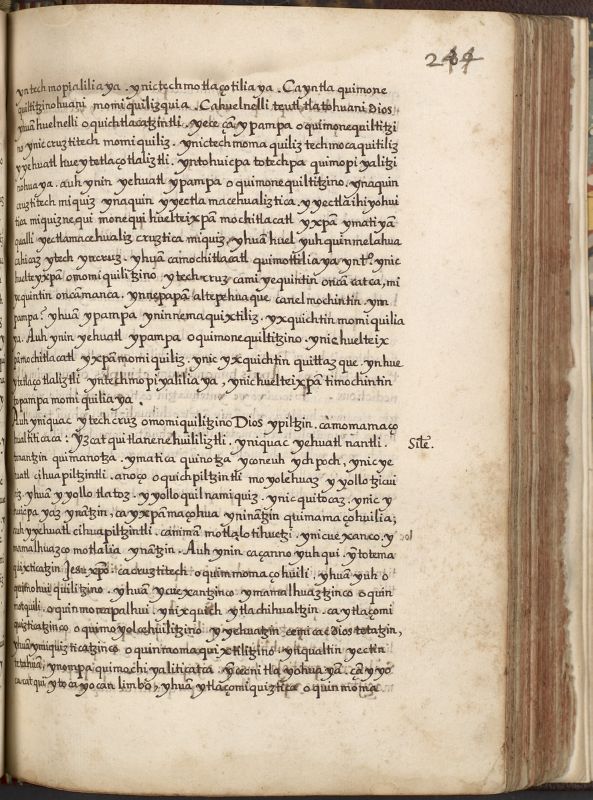 244
yntech mopialilia ya . ynic tech motlaçotilia ya . Ca yntla quimone
quiltitzinohuani momiquilizquia . Ca huelnelli teutl tlatohuani Dios
yhuã huelnelli oquichtlacatzintli . yece cã ypampa oquimonequiltitzi
no ynic cruztitech momiquiliz . ynic techmomaquiliz techmocaquitiliz
yyehuatl huey tetlaçotlaliztli . yn tohuicpa totechpa quimopiyalitzi
nohuaya . auh ynin yehuatl ypampa oquimonequiltitzino . ynaquin
cruztitech miquiz ynaquin yyectlamacehualiztica . yyectlaihiyohui
tica miquiznequi monequi huelteixpã mochitlacatl yxpã ymatiyã
qualli yectlamacehualiz cruztica miquiz, yhuã huel yuh quinmelahua
cahicaz ytech yncruz . yhuã ca mochitlacatl quimottilia ya ynto. ynic
huelteyxpã omomiquilitzino ytech cruz ca miyequintin oncã catca, mi
yequintin oncã manca . ynnepapã altepehuaque ca nel mochintin . ym
pampa? yhuã ypampa yninnemaquixtiliz . yxquichtin momiquilia
ya. Auh ynin yehuatl ypampa oquimonequiltitzino . ynic huelteix
pã mochitlacatl yxpã momiquiliz . ynic yxquichtin quittazque . yn hue
y tetlaçotlaliztli yntech mopiyalilia ya , ynic huelteixpã timochintin
topampa momiquilia ya .
Auh yniquac ytech cruz omomiquilitzino Dios ypiltzin . ca momamaço
hualtiticaca : yzcatqui tlanenehuililiztli . yniquac yehuatl nantli . Sile.
tenantzin quimanotza . ymatica quinotza yconeuh ychpoch, ynic ye
huatl cihuapiltzintli . anoço oquichpiltzintli moyolehuaz yyollotzicui
niz . yhuã yyollo tlatoz . yyollo quilnamiquiz . ynic quitocaz . ynic y
huicpa yaz ynãtzin, ca yxpã maçohua yninãtzin quimamaçohuilia;
auh yyehuatl cihuapiltzintli . canimã motlalotihuetzi . ynic cuexanco. y
mamalhuazco motlalia ynãtzin . Auh ynin ca çanno yuhqui . ytotema
quixticatzin Jesu xpõ : ca cruztitech oquinmomaçohuili , yhuã yuh o
quimohuiquilitzino . yhuã ycuexantzinco ymamalhuaztzinco oquin
motquili . oquinmonapalhui . ynixquich ytlachihualtzin . ca ytlaçomi
quizticatzinco oquimoyolcehuilitzino yyehuatzin cemicac Dios totatzin,
yhuã ymiquizticatzinco oquinmomaquixtilitzino ynqualtin yectin
totahuã, ynompa quimochiyaliticatca yccecni tlayohuaya . cã yyo
catcatqui ytoca yocan limbo, yhuã ytlaçomiquiztica oquinmoma